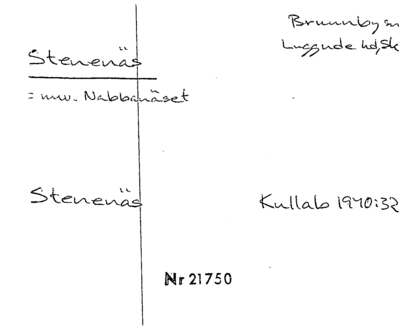 Stenenäs
Brunnby sn
Luggude hd, Sk
= nuv. Nabbanäset
Stenenäs
Kullab 1970:32
Nr 21750